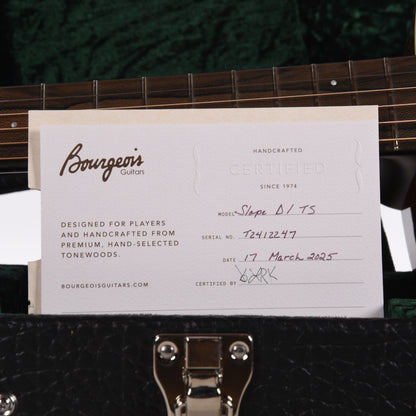 Bourgeois
Guitars
HANDCRAFTED
CERTIFIED
SINCE 1974
DESIGNED FOR PLAYERS
AND HANDCRAFTED FROM
PREMIUM, HAND-SELECTED
TONEWOODS.
BOURGEOISGUITARS.COM
MODEL Slope D / TS
SERIAL NO. T2412247
DATE 17 March 2025
CERTIFIED BY